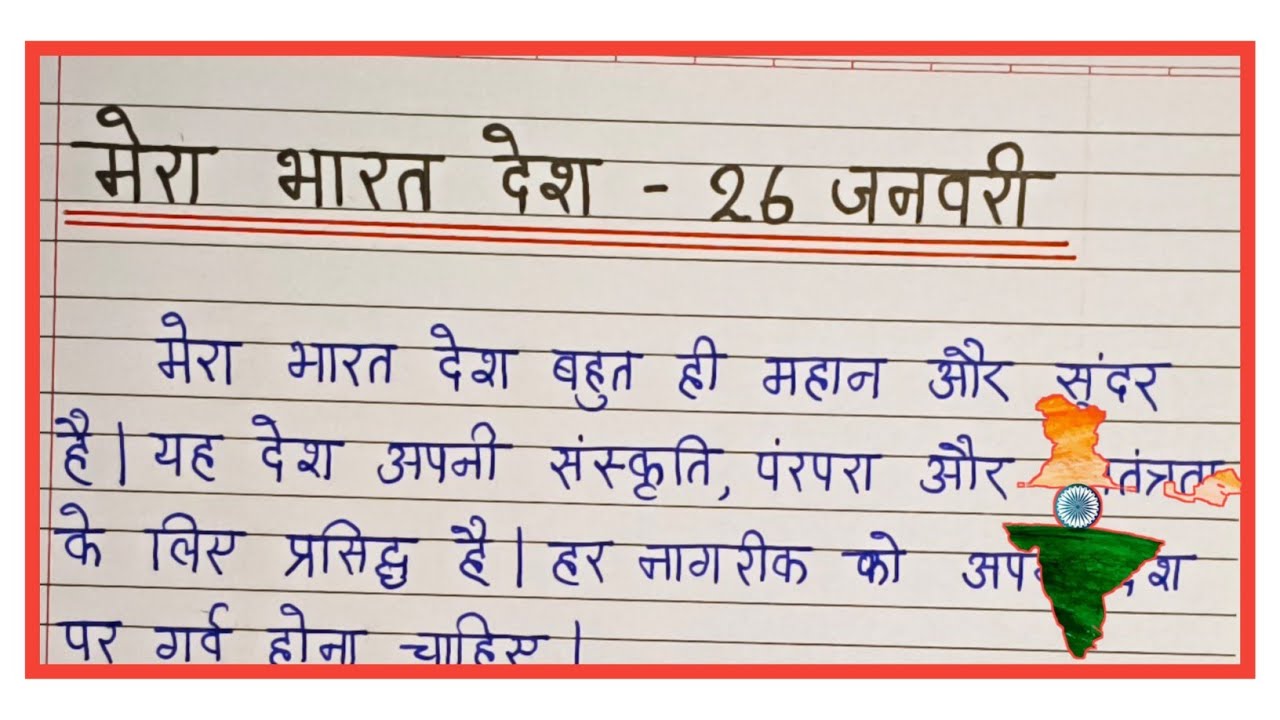 मेरा भारत देश - 26 जनवरी
मेरा भारत देश बहुत ही महान और सुंदर
है। यह देश अपनी संस्कृति, पंरपरा और
के लिए प्रसिद्ध है। हर नागरीक को
पर गर्व होना चाहिए।